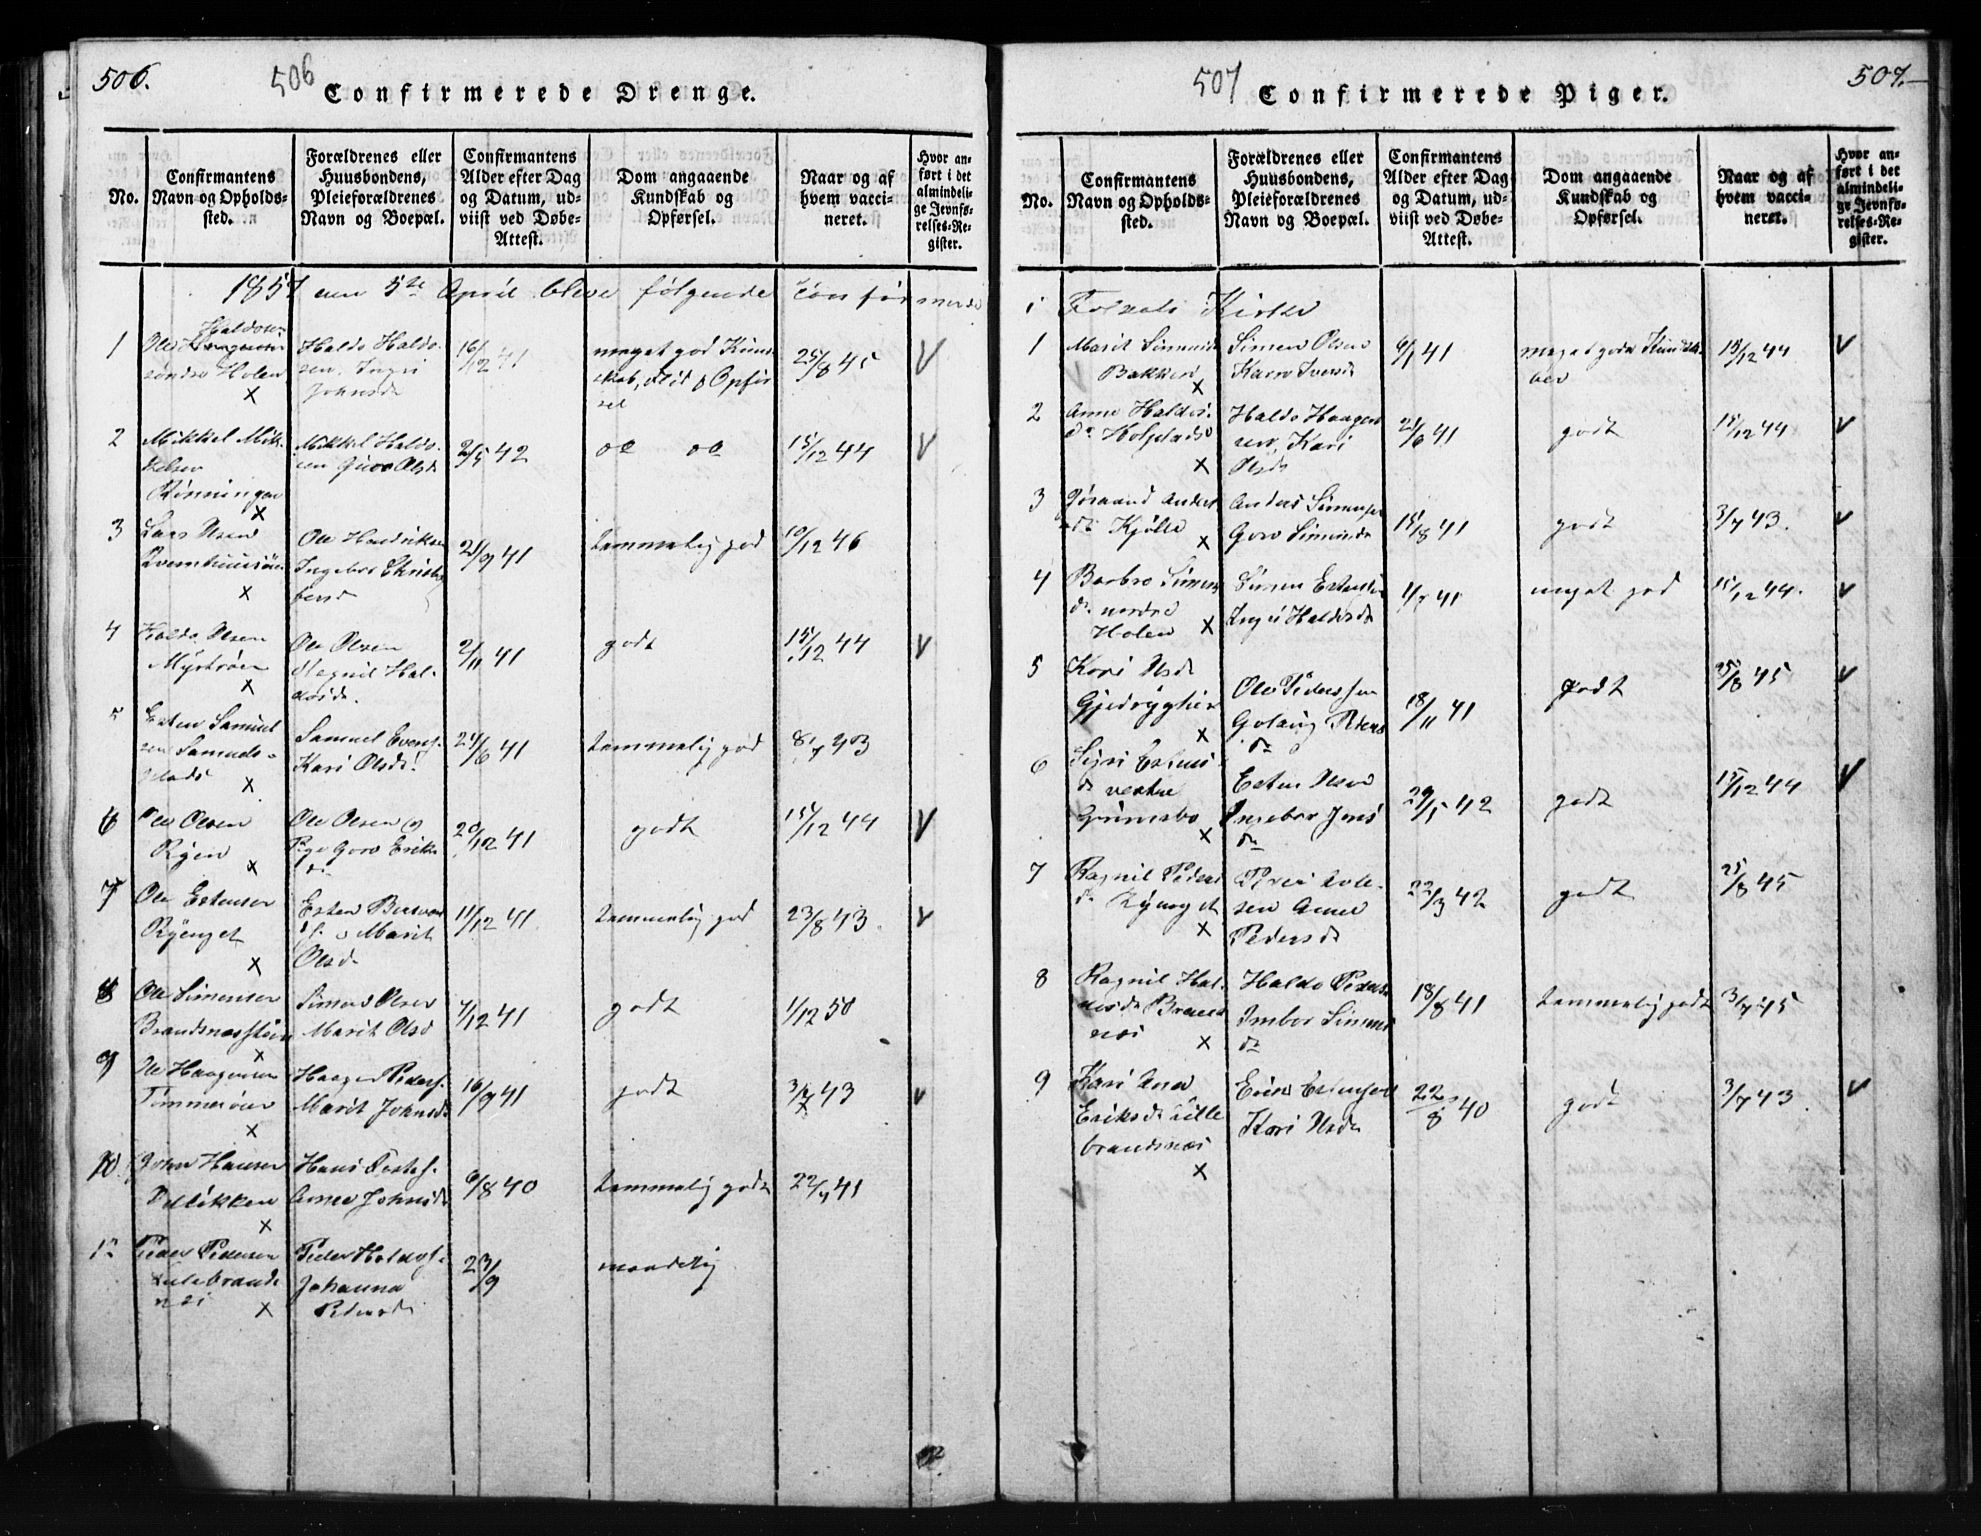 506.
506
Confirmerede Drenge.
No.
Confirmantens Navn og Opholds-sted.
Forældrenes eller Huusbondens, Pleieforældrenes Navn og Boepæl.
Confirmantens Alder efter Dag og Datum, ud-viist ved Døbe-Attest.
Dom angaaende Kundskab og Opførsel.
Naar og af hvem vacci-neret.
Hvor an-ført i det almindeli-ge Jevnfø-relses-Re-gister.
1857 den 5te April bleve følgende Confirmerede
1 Ole Haldosen
søndre Holen x
Haldo Haldo-
sen, Ingri
Johnsd
16/12 41
meget god Kund-
skab, Flid & Opfør
sel
25/8 45 V
2 Mikkel Mik-
kelsen
Rønningen x
Mikkel Haldo-
sen Guro Olsd
2/5 42
do do
15/12 44 V
3 Lars Olsen
x
Ole Hendriksen
Ingebor Christo
fersd
21/9 41
temmelig god
10/12 46
4 Haldo Olsen
Myrtrøen x
Ole Olsen
Magnil Hal-
dosd.
2/11 41
godt
15/12 44 V
5 Esten Samuel
sen Samuels-
plads x
Samuel Evens.
Kari Olsd.
24/6 41
temmelig god
8/7 43
6 Ole Olsen
Ryen x
Ole Olsen og
Pige Goro Eriks
d.
20/12 41
godt
15/12 44 V
7 Ole Estensen
Ryenget x
Esten
Marit
Olsd.
11/12 41
temmelig god
23/8 43. V
8 Ole Simensen
Brandsnesstein x
Simen Olsen
Marit Olsd
7/12 41
godt
1/12 50
9 Ole Haagensen
Timmerøien x
Haagen Peders.
Marit Johnsd
16/9 41
godt
3/7 43 V
10 John Hansen
x
Hans
Anne Johnsd
6/8 40
temmelig godt
22/7 41
Peder Pedersen
Lillebrands
nes x
Peder Haldos.
Johanna
Pedersd
23/9
maadelig
507
Confirmerede Piger.
507.
No.
Confirmantens Navn og Opholds-sted.
Forældrenes eller Huusbondens, Pleieforældrenes Navn og Boepæl.
Confirmantens Alder efter Dag og Datum, ud-viist ved Døbe-Attest.
Dom angaaende Kundskab og Opførsel.
Naar og af hvem vacci-neret.
Hvor an-ført i det almindeli-ge Jevnfø-relses-Re-gister.
i Foldals Kirke
1 Marit Simensd
Bakken x
Simen Olsen
Karen Iversd
6/1 41
meget gode Kundska-
ber
15/12 44 V
2 Anne Haldos-
d. x
Haldo Haagen
sen, Kari
Olsd.
21/6 41
godt
15/12 44 V
3 Jøraand Anders
d. Kjølle x
Anders Simensen
Goro Simensd
15/8 41
godt
3/7 43. V
4 Barbro Simens
d. nordre
Holen x
Simen Estensen
Ingri Haldosd
41
meget god
15/12 44. V
5 Kari Olsd
Gjedryghøe x
Ole Pederssen
Peders
d.
18/11 41
godt
25/8 45 V
6 Sigri Estens
d. vestre
Grimsbo x
Esten Olsen
Ingebor Jens
d.
29/5 42
godt
15/12 44 V
7 Ragnil Peders
d. Ryenget x
Peder
sen Anne
Pedersd
22/3 42
godt
25/8 45
8 Ragnil Hal-
dosd. Brands
nes x
Haldo Peders.
Imbor Simens
d.
18/8 41
temmelig godt
3/7 45
9 Kari Ana
Eriksd. Lille
brandsnes x
Erik Estensen
Kari Olsd.
22/8 40
godt
3/7 43. V